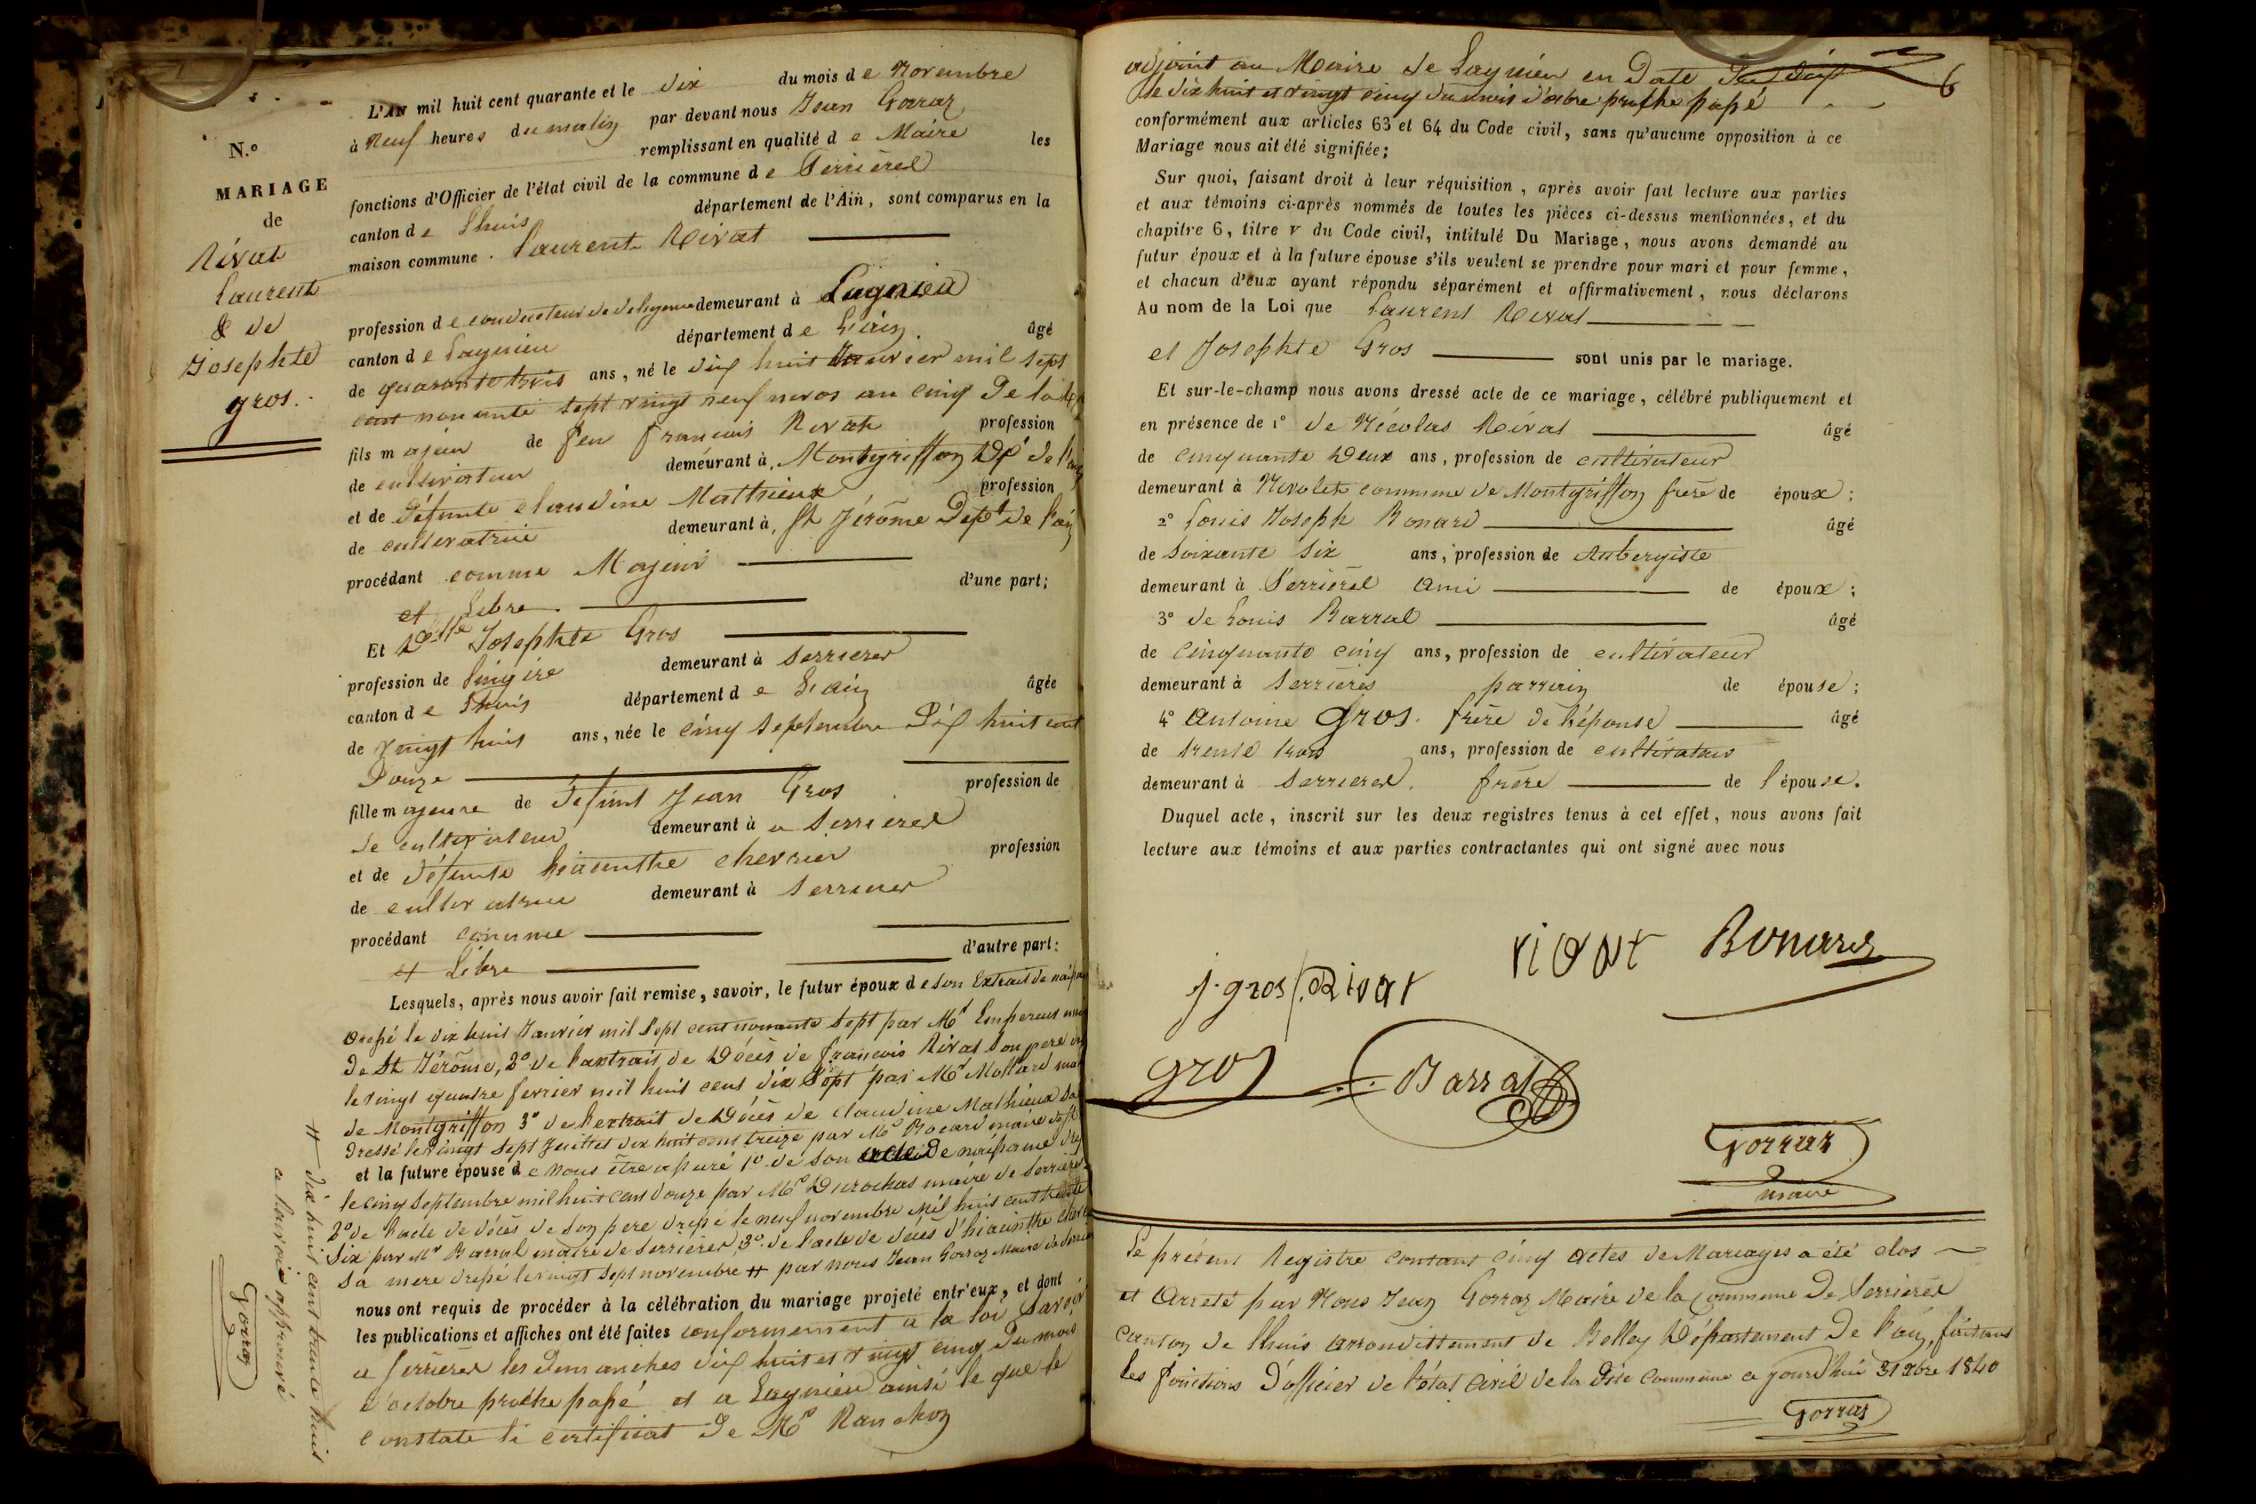 N.º
MARIAGE
de
Rivat
Laurent
& de
Josephte
gros.
L'AN mil huit cent quarante et le dix du mois de Novembre
à Neuf heures du matin par devant nous Jean Gorraz
remplissant en qualité de Maire les
fonctions d'Officier de l'état civil de la commune de Serrieres
canton de Lhuis département de l'Ain, sont comparus en la
maison commune. Laurent Rivat
profession de conducteur de demeurant à Lagnieu
canton de Lagnieu département de L'ain âgé
de quarante trois ans, né le dix huit Janvier mil sept
cent nonante sept vingt neuf nivos an cinq de la
fils majeur de feu françois Rivat profession
de cultivateur demeurant à Montgriffon Dpt de l'ain
et de défunte claudine Mathieux profession
de cultivatrice demeurant à St Jérôme Dept de l'ain
procédant comme Majeur
et Libre d'une part;
Et Delle Josephte Gros
profession de lingère demeurant à Serrieres
canton de Lhuis département de L'ain âgée
de vingt huit ans, née le cinq septembre Dix huit cent
Douze
fille majeure de défunt Jean Gros profession de
de cultivateur demeurant à a Serrieres
et de défunte hiacinthe chervier profession
de cultivatrice demeurant à Serrieres
procédant comme
et Libre d'autre part:
Lesquels, après nous avoir fait remise, savoir, le futur époux de son Extrait de
le dix huit Janvier mil sept cent nonante sept par Mr Empereur
De St Jérôme, 2º de l'axtrait de Décès de françois Rivat son pere
le vingt quatre fevrier mil huit cent dix sept par Mr Mollard
de Montgriffon 3º de l'extrait de Décès de claudine Mathieux
Dressé le vingt sept Juillet dix huit cent treize par Mr Bocard maire de St
et la future épouse de nous être aparé 1º de son acte De
le cinq septembre mil huit cent douze par Mr Durochas maire de Serrieres
2º de l'acte de décès de son pere drepé le neuf novembre mil huit cent trente
Six par Mr Barral maire de Serrieres, 3º de l'acte de décès d'hiacinthe
sa mere drepé le vingt sept novembre # par nous Jean Gorraz Maire de
nous ont requis de procéder à la célébration du mariage projeté entr'eux, et dont
les publications et affiches ont été faites conformement a la loi Savoir
a Serrieres les Dimanches dix huit et vingt cinq du mois
d'octobre proche papé et a Lagnieu ainsi le que le
constate le certificat De Mr Ranchon
# dix huit cent trente huit
ce renvoi approuvé
Gorraz
6
adjoint au Maire de Lagnieu en Date
le dix huit et vingt cinq du mois d'8bre proche papé
conformément aux articles 63 et 64 du Code civil, sans qu'aucune opposition à ce
Mariage nous ait été signifiée;
Sur quoi, faisant droit à leur réquisition, après avoir fait lecture aux parties
et aux témoins ci-après nommés de toutes les pièces ci-dessus mentionnées, et du
chapitre 6, titre v du Code civil, intitulé Du Mariage, nous avons demandé au
futur époux et à la future épouse s'ils veulent se prendre pour mari et pour femme,
et chacun d'eux ayant répondu séparément et affirmativement, nous déclarons
Au nom de la Loi que Laurent Rivat
et Josephte Gros sont unis par le mariage.
Et sur-le-champ nous avons dressé acte de ce mariage, célébré publiquement et
en présence de 1º de Nécolas Rivat âgé
de cinquante Deux ans, profession de cultivateur
demeurant à Nivolet commune de Montgriffon frere de époux;
2º Louis Joseph Bonard âgé
de soixante six ans, profession de Aubergiste
demeurant à Serrieres ami de époux;
3º de Louis Barral âgé
de cinquante cinq ans, profession de cultivateur
demeurant à Serrieres parrain de épouse;
4º antoine gros. frère de l'épouse âgé
de trente trois ans, profession de cultivateur
demeurant à Serrieres. frère de l'épouse.
Duquel acte, inscrit sur les deux registres tenus à cet effet, nous avons fait
lecture aux témoins et aux parties contractantes qui ont signé avec nous
j. gros Rivat rivat Bonard
gros Barral
Gorraz
maire
Le présent Registre contant cinq actes de Mariages a été clos
et Arreté par Nous Jean Gorraz Maire de la commune De Serrieres
canton de Lhuis arrondissement de Belley Département De l'ain, faisant
les fonctions D'officier de l'état civil de la Dite commune ce jourd'hui 31 Xbre 1840
Gorraz